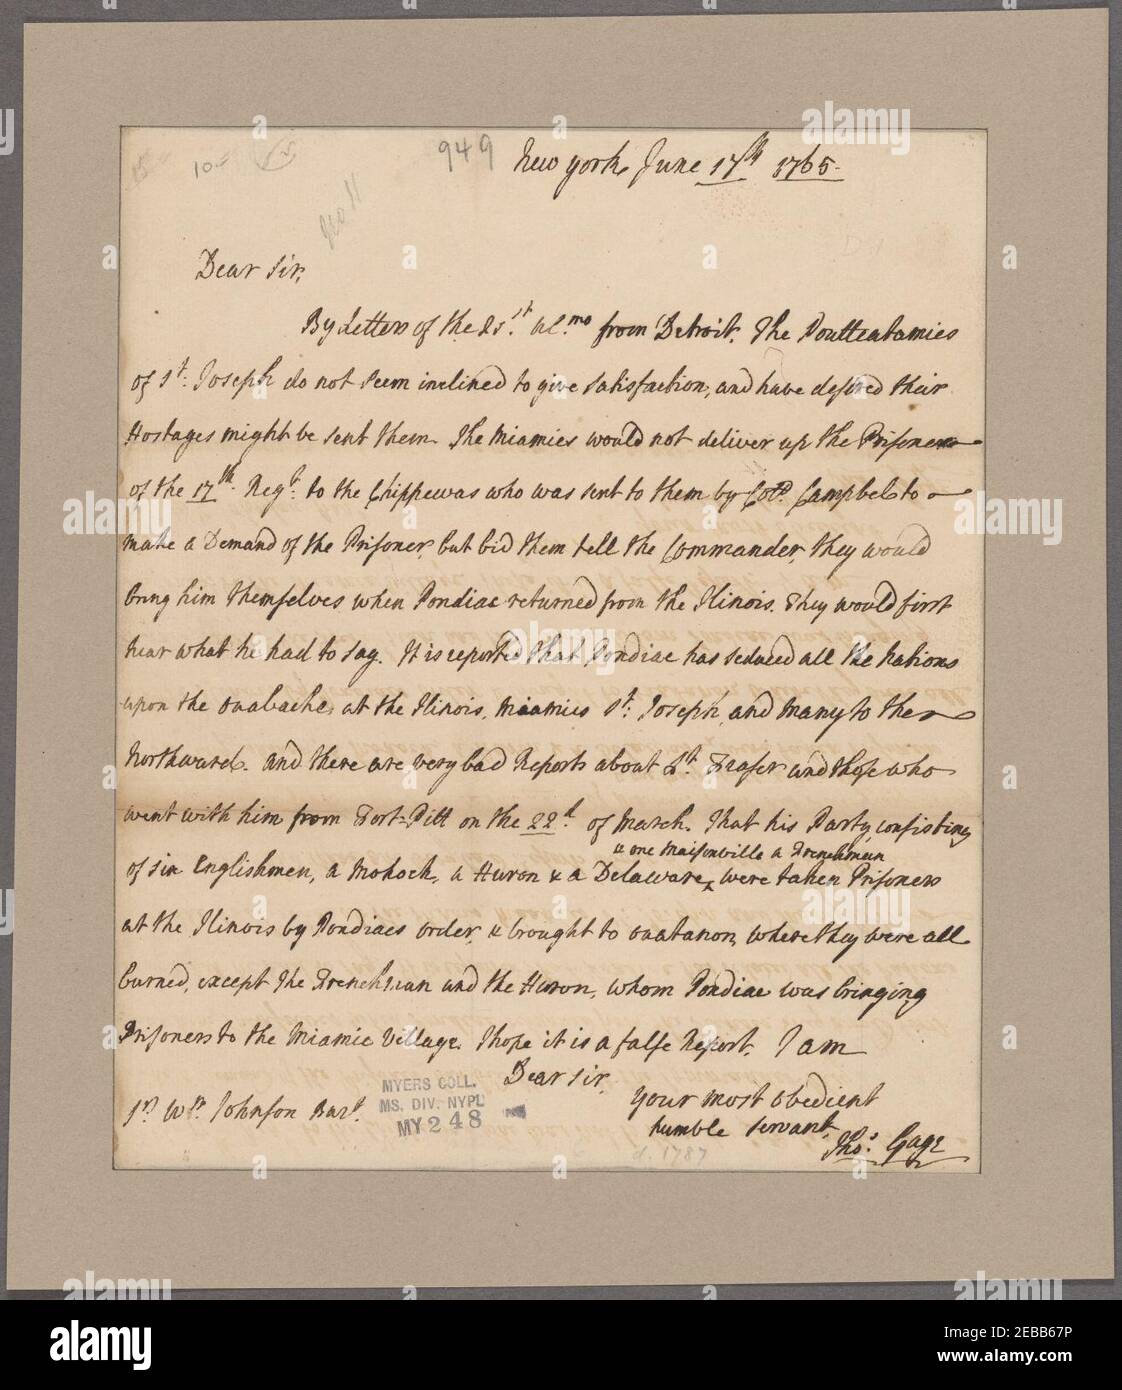 949 New york June 17th 1765.
Dear Sir,
By Letters of the 21.st Ul.mo from Detroit. The Poutteatamies
of St: Joseph do not seem inclined to give Satisfaction, and have desired their
Hostages might be sent them. The Miamies would not deliver up the Prisoner
of the 17th. Regt: to the Chippewas who was sent to them by Coll. Campbel to
make a Demand of the Prisoner, but bid them tell the Commander, they would
bring him themselves when Pondiac returned from the Ilinois. They would first
hear what he had to say. It is reported that Pondiac has seduced all the Nations
upon the Ouabache, at the Ilinois, Miamies St: Joseph, and many to the
Northward. and there are very bad Reports about Lt. Fraser and those who
went with him from Fort-Pitt on the 22d. of March. That his Party consisting
& one Maisonville a Frenchman
of six Englishmen, a Mohock, a Huron & a Delaware, were taken Prisoners
at the Ilinois by Pondiacs order, & brought to Ouatanon, where they were all
burned, except the Frenchman and the Huron, whom Pondiac was bringing
Prisoners to the Miamie Village. I hope it is a false Report. I am
Dear Sir,
your most obedient
humble servant,
Thos: Gage
Sr. Wm. Johnson Bart.
MYERS COLL.
MS. DIV. NYPL
MY 248
d. 1787
alamy
Image ID: 2EBB67P
www.alamy.com